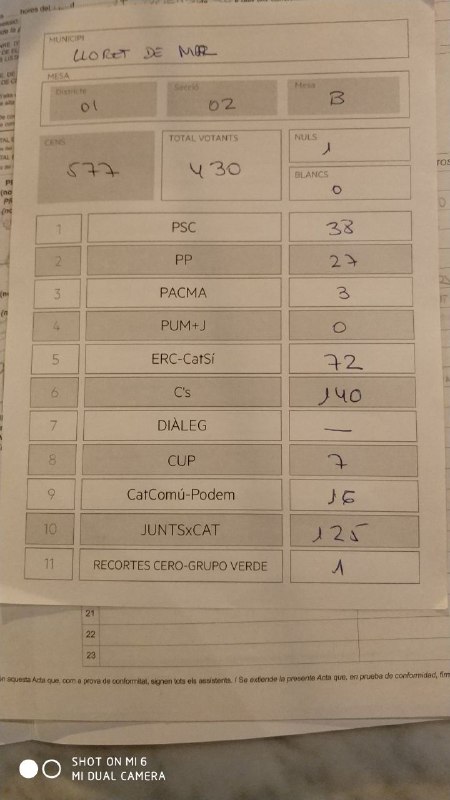 hores del
MUNICIPI
LLORET DE MAR
MESA
Districte
Secció
Mesa
01
02
B
CENS
577
TOTAL VOTANTS
430
NULS
1
BLANCS
0
1 PSC 38
2 PP 27
3 PACMA 3
4 PUM+J 0
5 ERC-CatSí 72
6 C's 140
7 DIÀLEG —
8 CUP 7
9 CatComú-Podem 16
10 JUNTSxCAT 125
11 RECORTES CERO-GRUPO VERDE 1
21
22
23
aquesta Acta que, com a prova de conformitat, signen tots els assistents. / Se extiende la presente Acta que, en prueba de conformidad, firm
SHOT ON MI 6
MI DUAL CAMERA